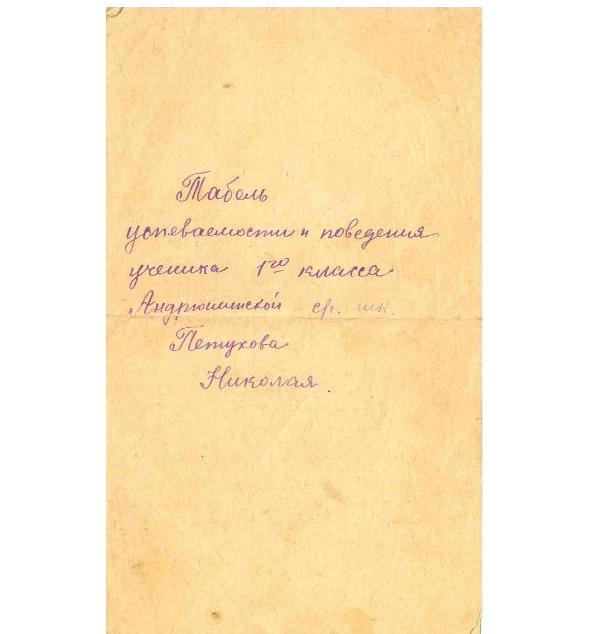 Табель
успеваемости и поведения
ученика 1го класса
Андрюшинской ср. шк.
Петухова
Николая.